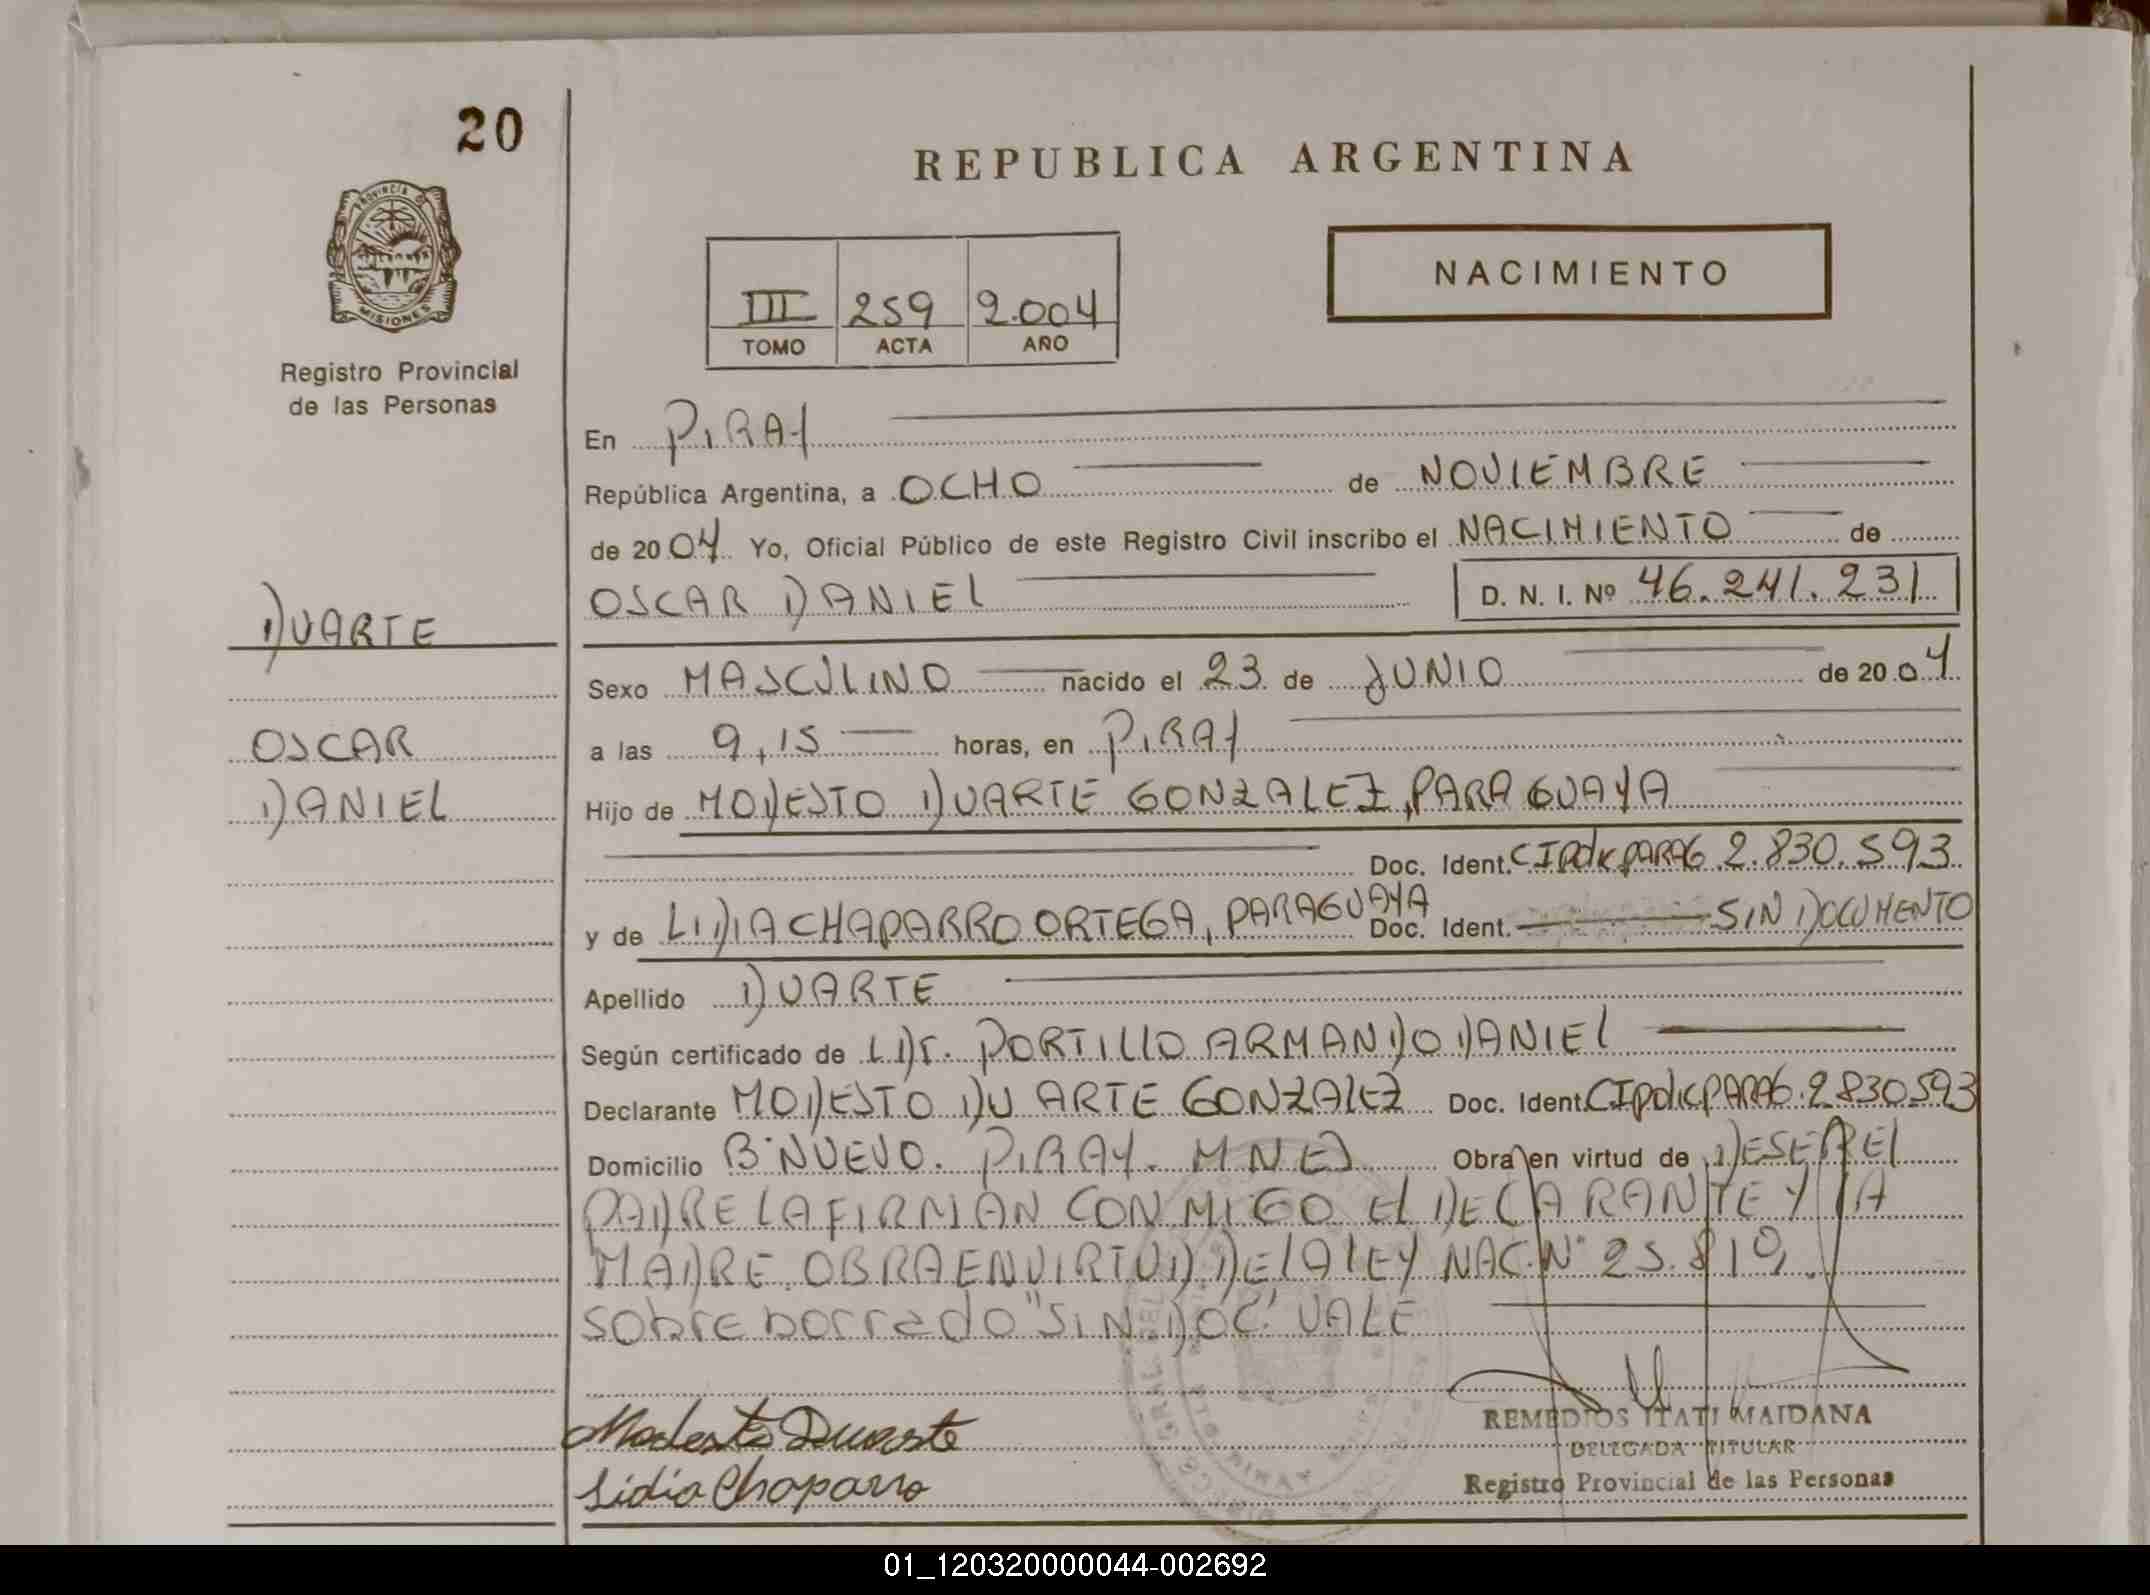 20
REPUBLICA ARGENTINA
PROVINCIA DE
MISIONES
NACIMIENTO
III 259 2.004
TOMO ACTA AÑO
Registro Provincial
de las Personas
En PIRAY
República Argentina, a OCHO de NOVIEMBRE
de 2004 Yo, Oficial Público de este Registro Civil inscribo el NACIMIENTO de
OSCAR DANIEL D. N. I. Nº 46.241.231
DUARTE
Sexo MASCULINO nacido el 23 de JUNIO de 2004
OSCAR
a las 9,15 horas, en PIRAY
DANIEL
Hijo de MODESTO DUARTE GONZALEZ, PARAGUAYA
Doc. Ident. CIPdkPARAG 2.830.593
y de LIDIA CHAPARRO ORTEGA, PARAGUAYA Doc. Ident. SIN DOCUMENTO
Apellido DUARTE
Según certificado de L Dr. PORTILLO ARMANDO DANIEL
Declarante MODESTO DUARTE GONZALEZ Doc. Ident. CIPdkPARAG. 2830593
Domicilio Bº NUEVO. PIRAY. MNES Obra en virtud de DESER EL
PADRE LA FIRMAN CONMIGO El DECLARANTE Y LA
MADRE. OBRA EN VIRTUD DE LA LEY NAC. Nº 25.819.
sobre borrado "SIN DOC" VALE
Modesto Duarte
Lidia Chaparro
REMEDIOS ITATI MAIDANA
DELEGADA TITULAR
Registro Provincial de las Personas
01_120320000044-002692